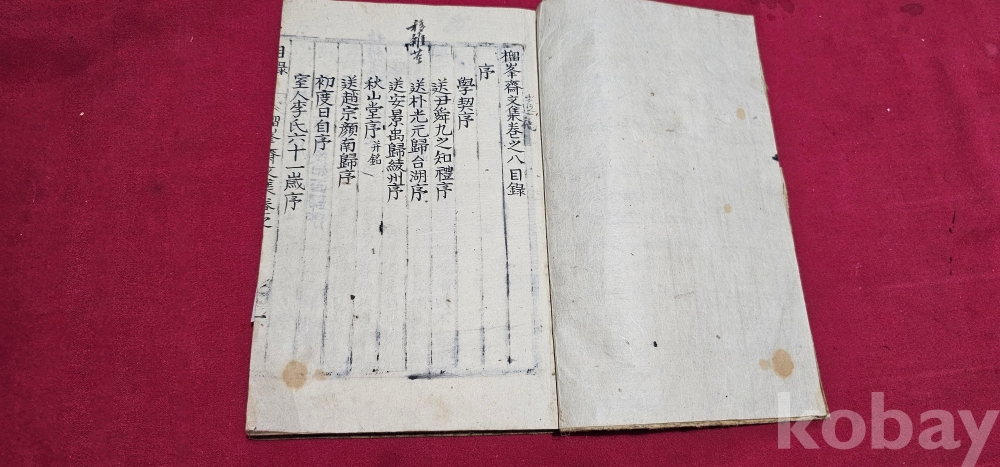 榴峯齋文集卷之八目錄
序
學契序
送尹舜九之知禮序
送朴光元歸台湖序
送安景禹歸綾州序
秋山堂序并銘
送趙宗顔南歸序
初度日自序
室人李氏六十一歲序
目錄
榴峯齋文集卷之
一
kobay